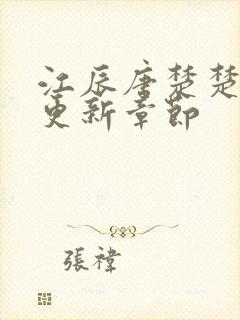 江辰唐楚楚
更新章節
張禕